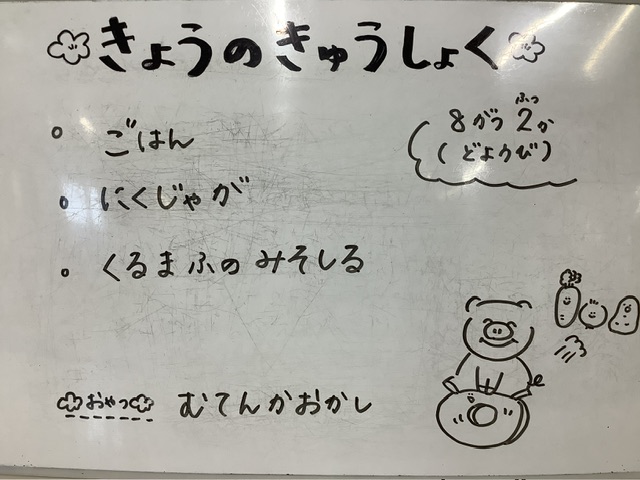 きょうのきゅうしょく
8がつ2か
ふつ
(どようび)
。ごはん
。にくじゃが
。くるまふのみそしる
おやつ むてんかおかし